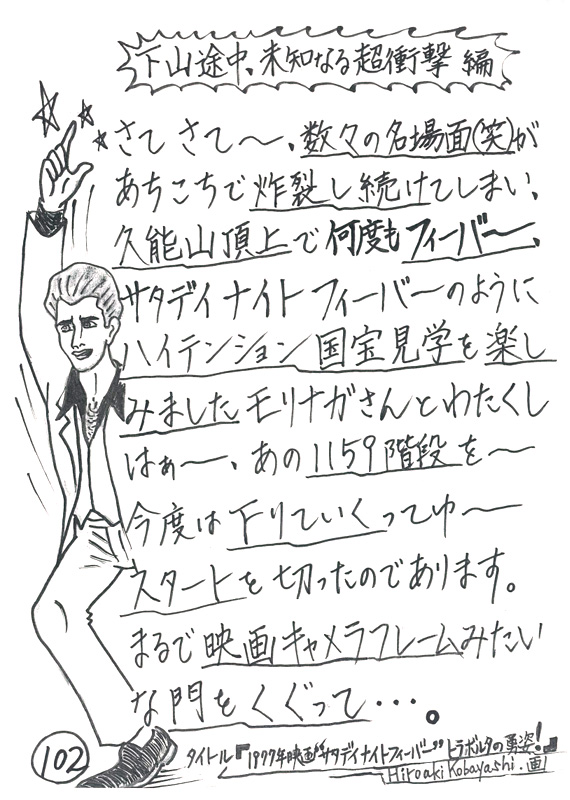 下山途中、未知なる超衝撃 編
さて さて〜、数々の名場面(笑)が
あちこちで炸裂し続けてしまい、
久能山頂上で何度もフィーバー、
サタデイ ナイト フィーバーのように
ハイテンション国宝見学を楽し
みました モリナガさんとわたくし
はぁー、あの1159階段を〜
今度は下りていくってゆ〜
スタートを切ったのであります。
まるで映画キャメラフレームみたい
な門をくぐって・・・。
102
タイトル『1977年映画“サタデイナイトフィーバー”トラボルタの勇姿!』
Hiroaki Kobayashi.画